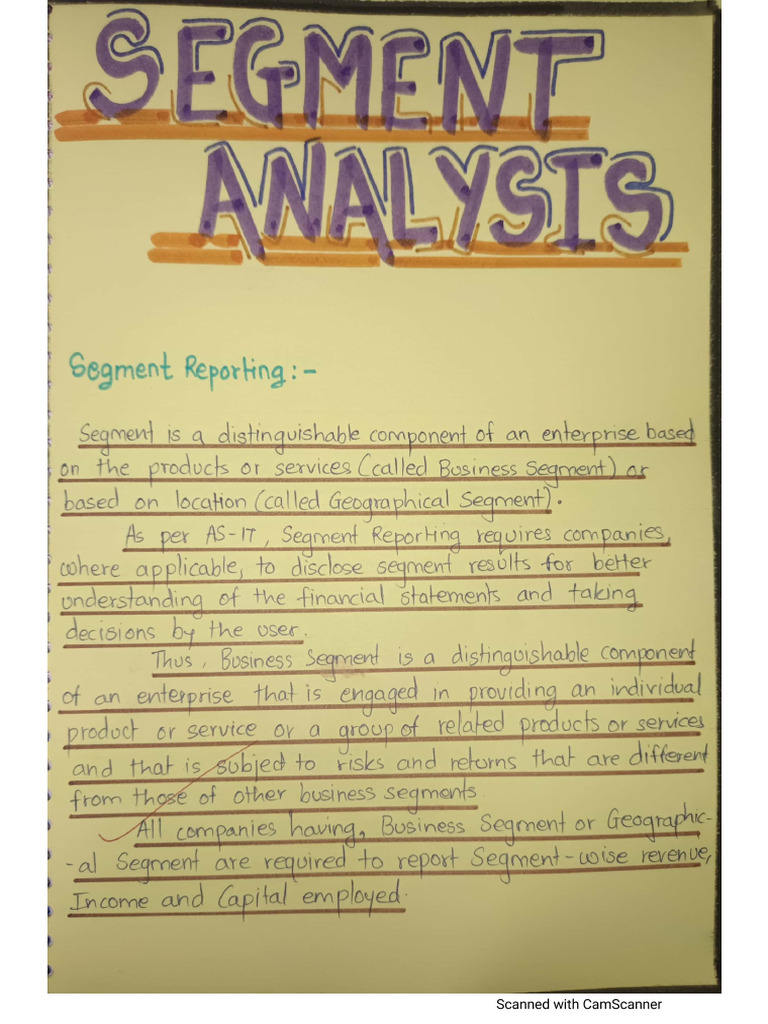 SEGMENT
ANALYSIS
Segment Reporting :-
Segment is a distinguishable component of an enterprise based
on the products or services (called Business Segment) or
based on location (called Geographical Segment).
As per AS-17, Segment Reporting requires companies,
where applicable, to disclose segment results for better
understanding of the financial statements and taking
decisions by the user.
Thus, Business Segment is a distinguishable component
of an enterprise that is engaged in providing an individual
product or service or a group of related products or services
and that is subject to risks and returns that are different
from those of other business segments.
All companies having, Business Segment or Geographic-
-al Segment are required to report Segment-wise revenue,
Income and Capital employed.
Scanned with CamScanner